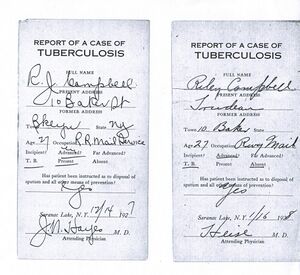 REPORT OF A CASE OF
TUBERCULOSIS
FULL NAME
R. J. Campbell
PRESENT ADDRESS
10 Baker St
FORMER ADDRESS
Town State NY
Age 27 Occupation R.R. Mail Service
Incipient? Advanced? Far Advanced?
T. B. Present Absent
Has patient been instructed as to disposal of
sputum and all other means of prevention?
Yes
Saranac Lake, N. Y. 12/14 1927
J. N. Hayes M. D.
Attending Physician
REPORT OF A CASE OF
TUBERCULOSIS
FULL NAME
Riley Campbell
PRESENT ADDRESS
Trudeau
FORMER ADDRESS
Town 10 Baker State
Age 27 Occupation Rwy Mail
Incipient? Advanced? Far Advanced?
T. B. Present Absent
Has patient been instructed as to disposal of
sputum and all other means of prevention?
Yes
Saranac Lake, N. Y. 1/16 1928
Heise M. D.
Attending Physician